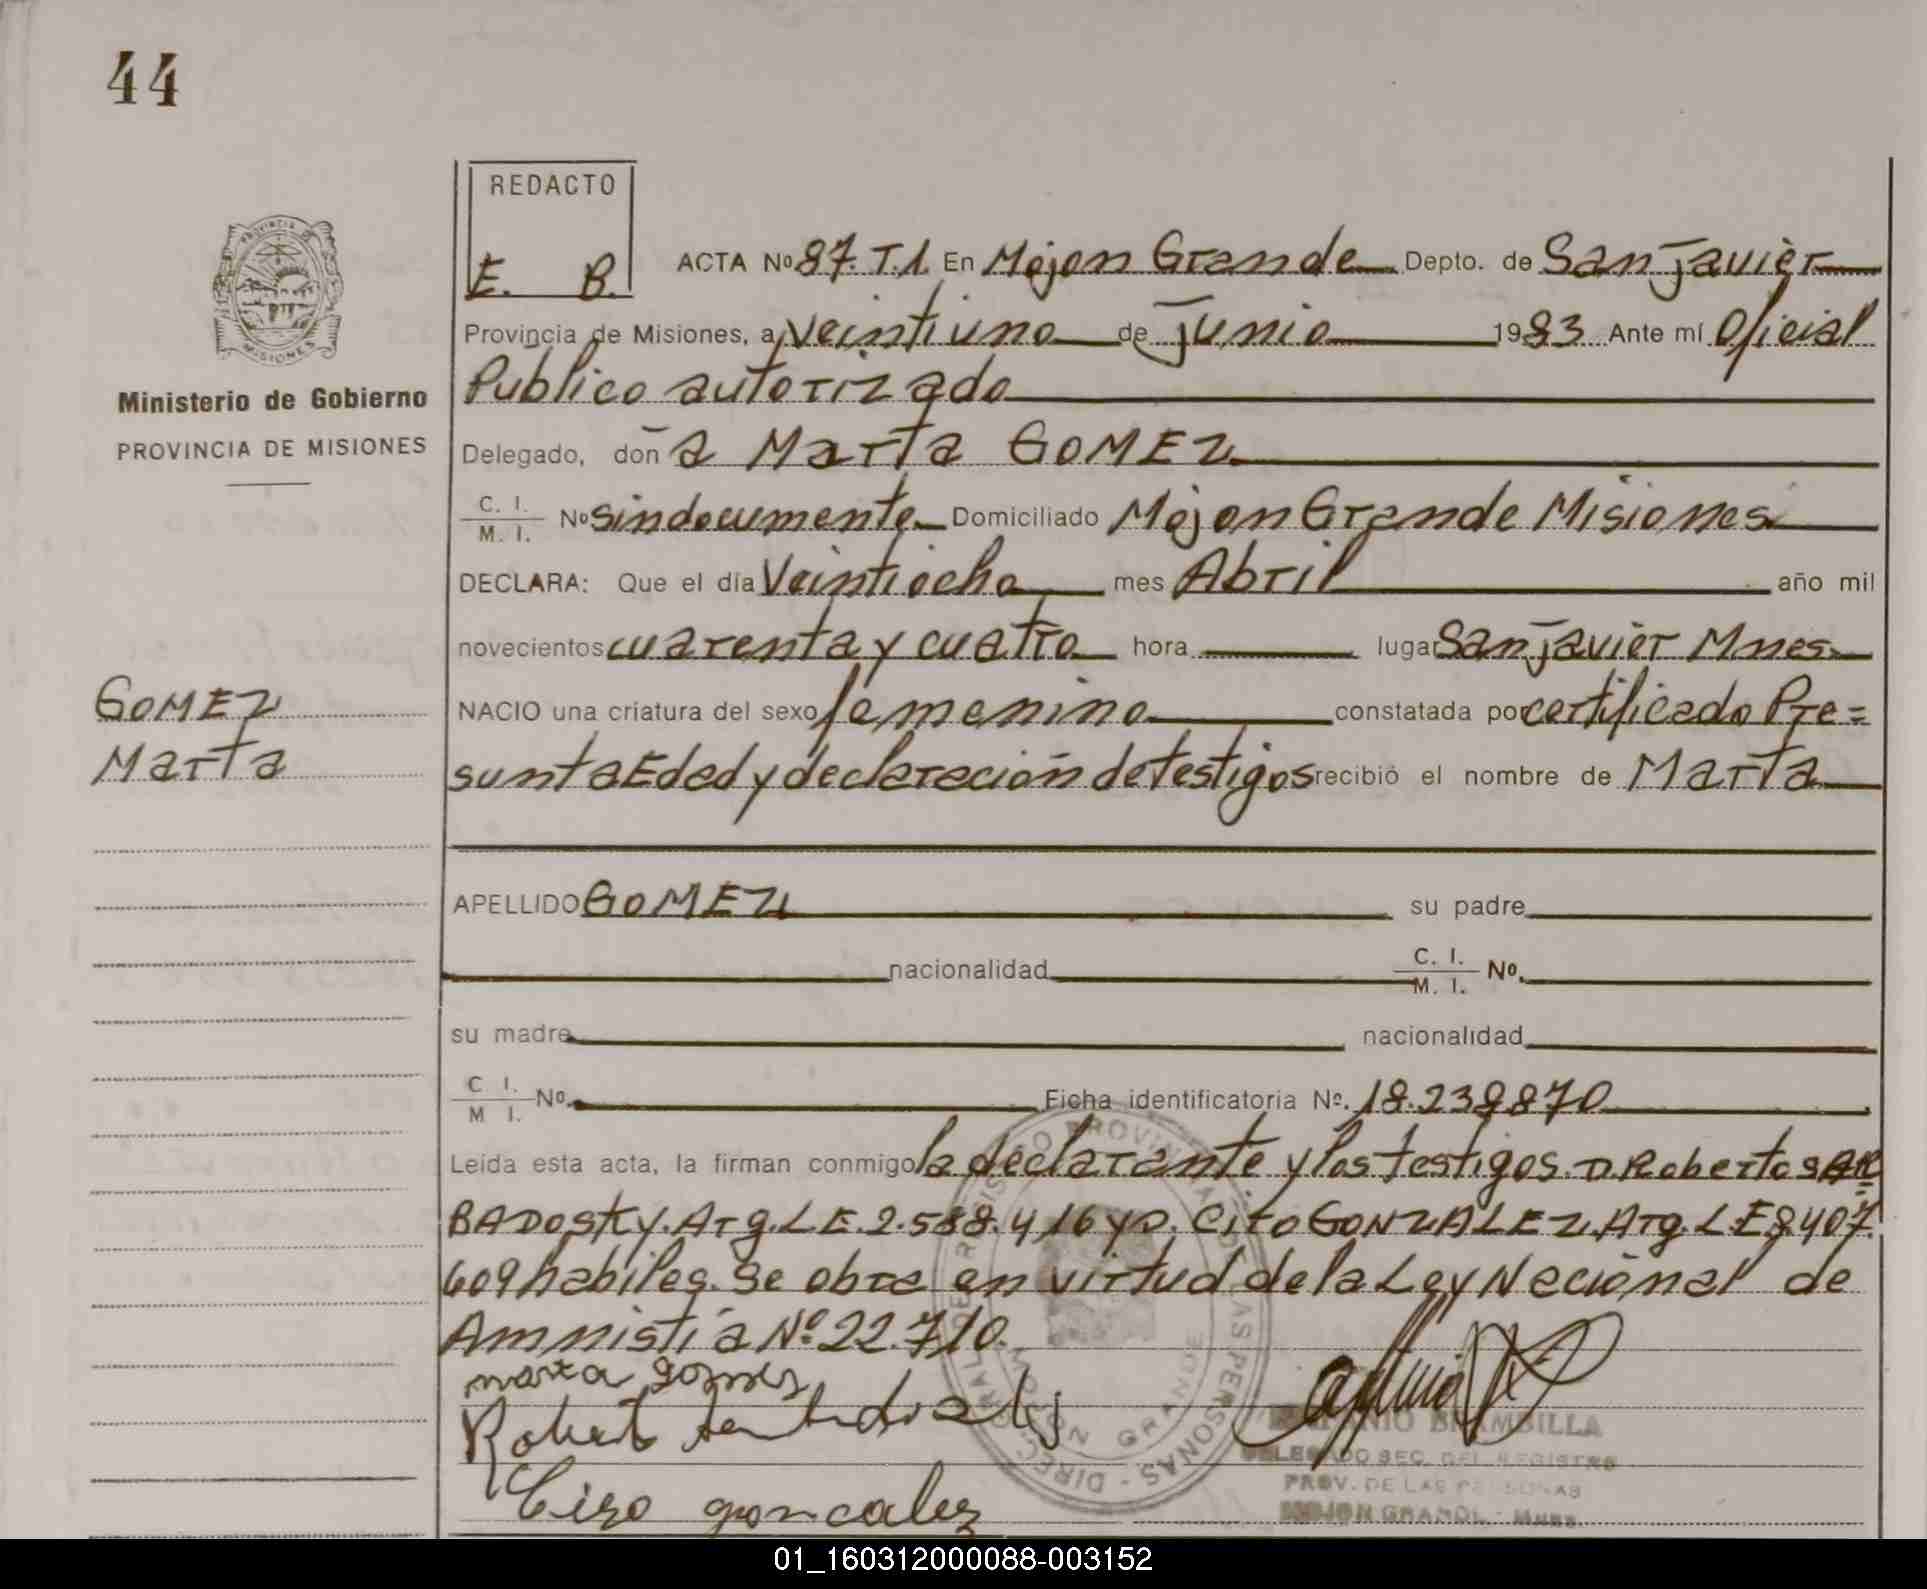 44
REDACTO
E. B.
ACTA Nº 87. T.1. En Mojon Grande Depto. de San Javier
Provincia de Misiones, a Veintiuno de Junio 1983 Ante mí Oficial
Publico autorizado
Ministerio de Gobierno
PROVINCIA DE MISIONES
Delegado, doña Marta GOMEZ
C. I.
M. I. Nº sindocumento Domiciliado Mojon Grande Misiones
DECLARA: Que el día Veintiocho mes Abril año mil
novecientos cuarenta y cuatro hora lugar San Javier Mnes
GOMEZ
Marta
NACIO una criatura del sexo femenino constatada por certificado Pre=
sunta Edad y declaración de testigos recibió el nombre de Marta
APELLIDO GOMEZ su padre
nacionalidad C. I.
M. I. Nº.
su madre nacionalidad
C I.
M I. Nº. Ficha identificatoria Nº. 18.238870
Leída esta acta, la firman conmigo la declarante y los testigos. D. Roberto SAR
BADOSKY. Arg. L E. 2.588.416 y D. Ciro GONZALEZ. Arg. L E 8.407.
609 habiles. Se obra en virtud de la Ley Nacional de
Amnistía Nº 22.710.
marta gomes
Ciro goncalez
DELEGADO SEC. DEL REGISTRO
PROV. DE LAS PERSONAS
MOJON GRANDE - Mnes.
01_160312000088-003152